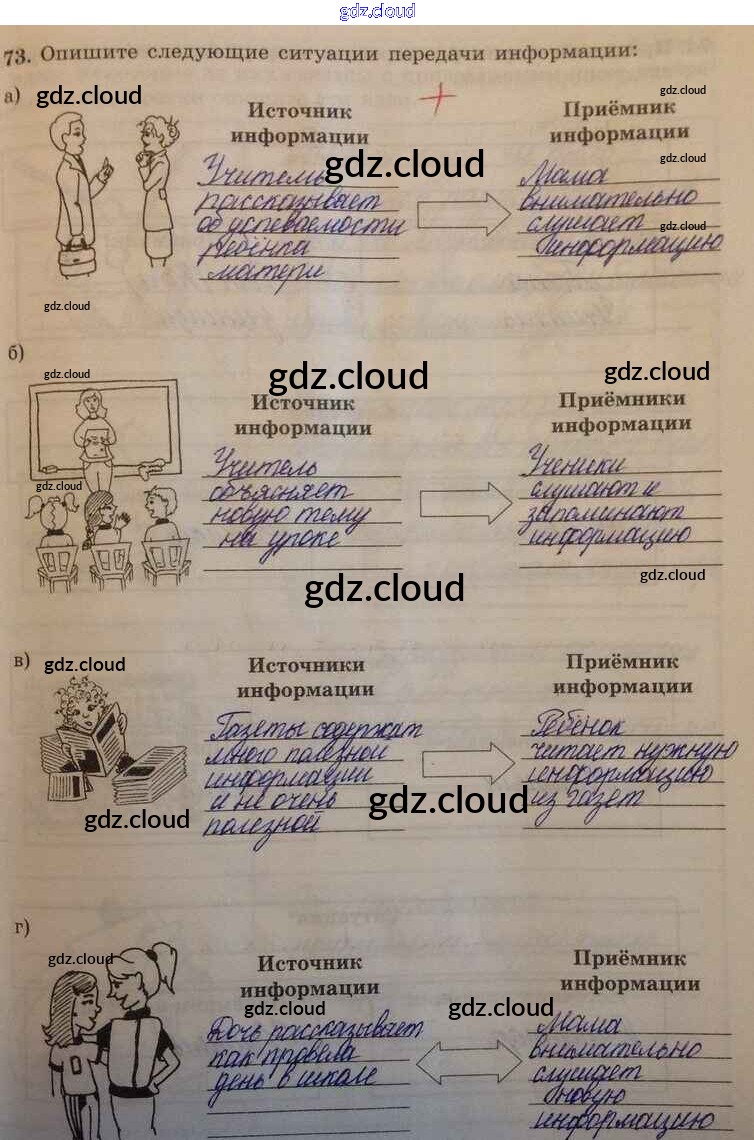 gdz.cloud
73. Опишите следующие ситуации передачи информации:
а)
gdz.cloud
gdz.cloud
Источник информации
Приёмник информации
gdz.cloud
gdz.cloud
gdz.cloud
Учитель
рассказывает
об успеваемости
ребёнка
матери
Мама
внимательно
слушает
информацию
gdz.cloud
gdz.cloud
б)
gdz.cloud
gdz.cloud
gdz.cloud
Источник информации
Приёмники информации
gdz.cloud
Учитель
объясняет
новую тему
на уроке
Ученики
слушают и
запоминают
информацию
gdz.cloud
gdz.cloud
в)
gdz.cloud
Источники информации
Приёмник информации
Газеты содержат
много полезной
информации
и не очень
полезной
Ребёнок
читает нужную
информацию
из газет
gdz.cloud
gdz.cloud
г)
gdz.cloud
Источник информации
Приёмник информации
gdz.cloud
gdz.cloud
Дочь рассказывает
как провела
день в школе
Мама
внимательно
слушает
новую
информацию